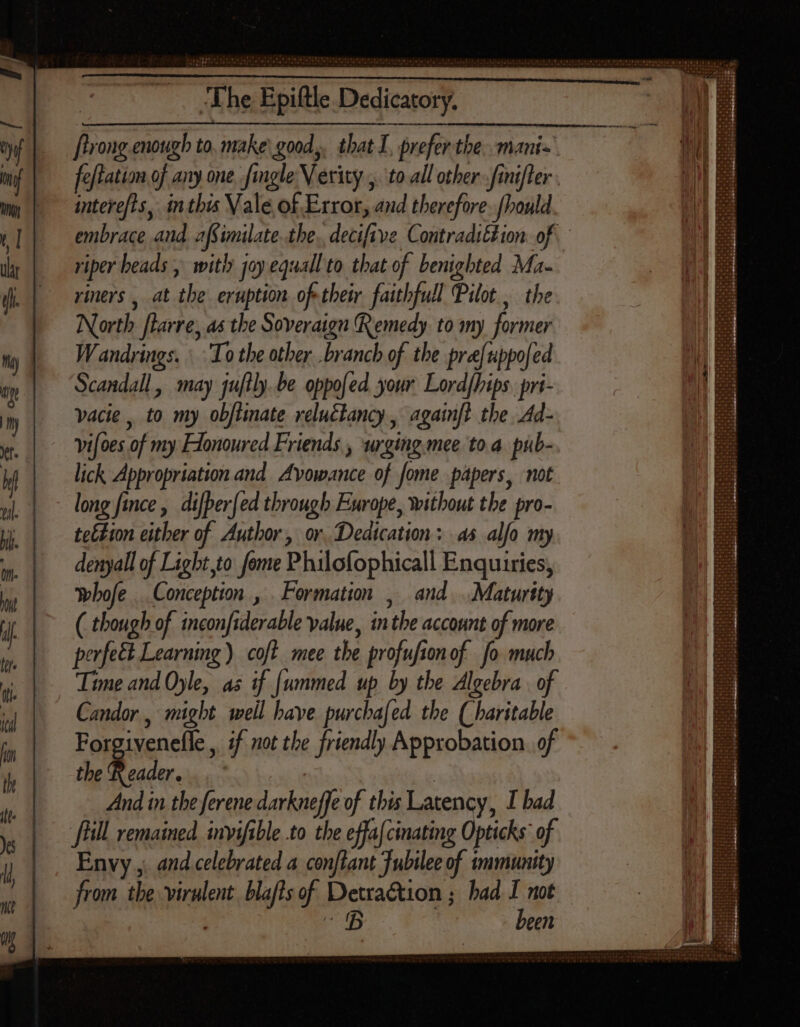 The Epiſtle Dedicatory.
ſtrong enough to make good, that I prefer the mani-
feſtation of any one ſingle Verity, to all other ſiniſter
intereſts, in this Vale of Error, and therefore ſhould
embrace and aſsimilate the deciſive Contradiction of
riper heads, with joy equall to that of benighted Ma-
riners, at the eruption of their faithfull Pilot, the
North ſtarre, as the Soveraign Remedy to my former
Wandrings. To the other branch of the præſuppoſed
Scandall, may juſtly be oppoſed your Lordſhips pri-
vacie, to my obſtinate reluctancy, againſt the Ad-
viſoes of my Honoured Friends, urging mee to a pub-
lick Appropriation and Avowance of ſome papers, not
long ſince, diſperſed through Europe, without the pro-
tection either of Author, or Dedication: as alſo my
denyall of Light, to ſome Philoſophicall Enquiries,
whoſe Conception, Formation, and Maturity
(though of inconſiderable value, in the account of more
perfect Learning) coſt mee the profuſion of ſo much
Time and Oyle, as if ſummed up by the Algebra of
Candor, might well have purchaſed the Charitable
Forgiveneſſe, if not the friendly Approbation of
the Reader.
And in the ſerene darkneſſe of this Latency, I had
ſtill remained inviſible to the effaſcinating Opticks of
Envy, and celebrated a conſtant Jubilee of immunity
from the virulent blaſts of Detraction; had I not
B been